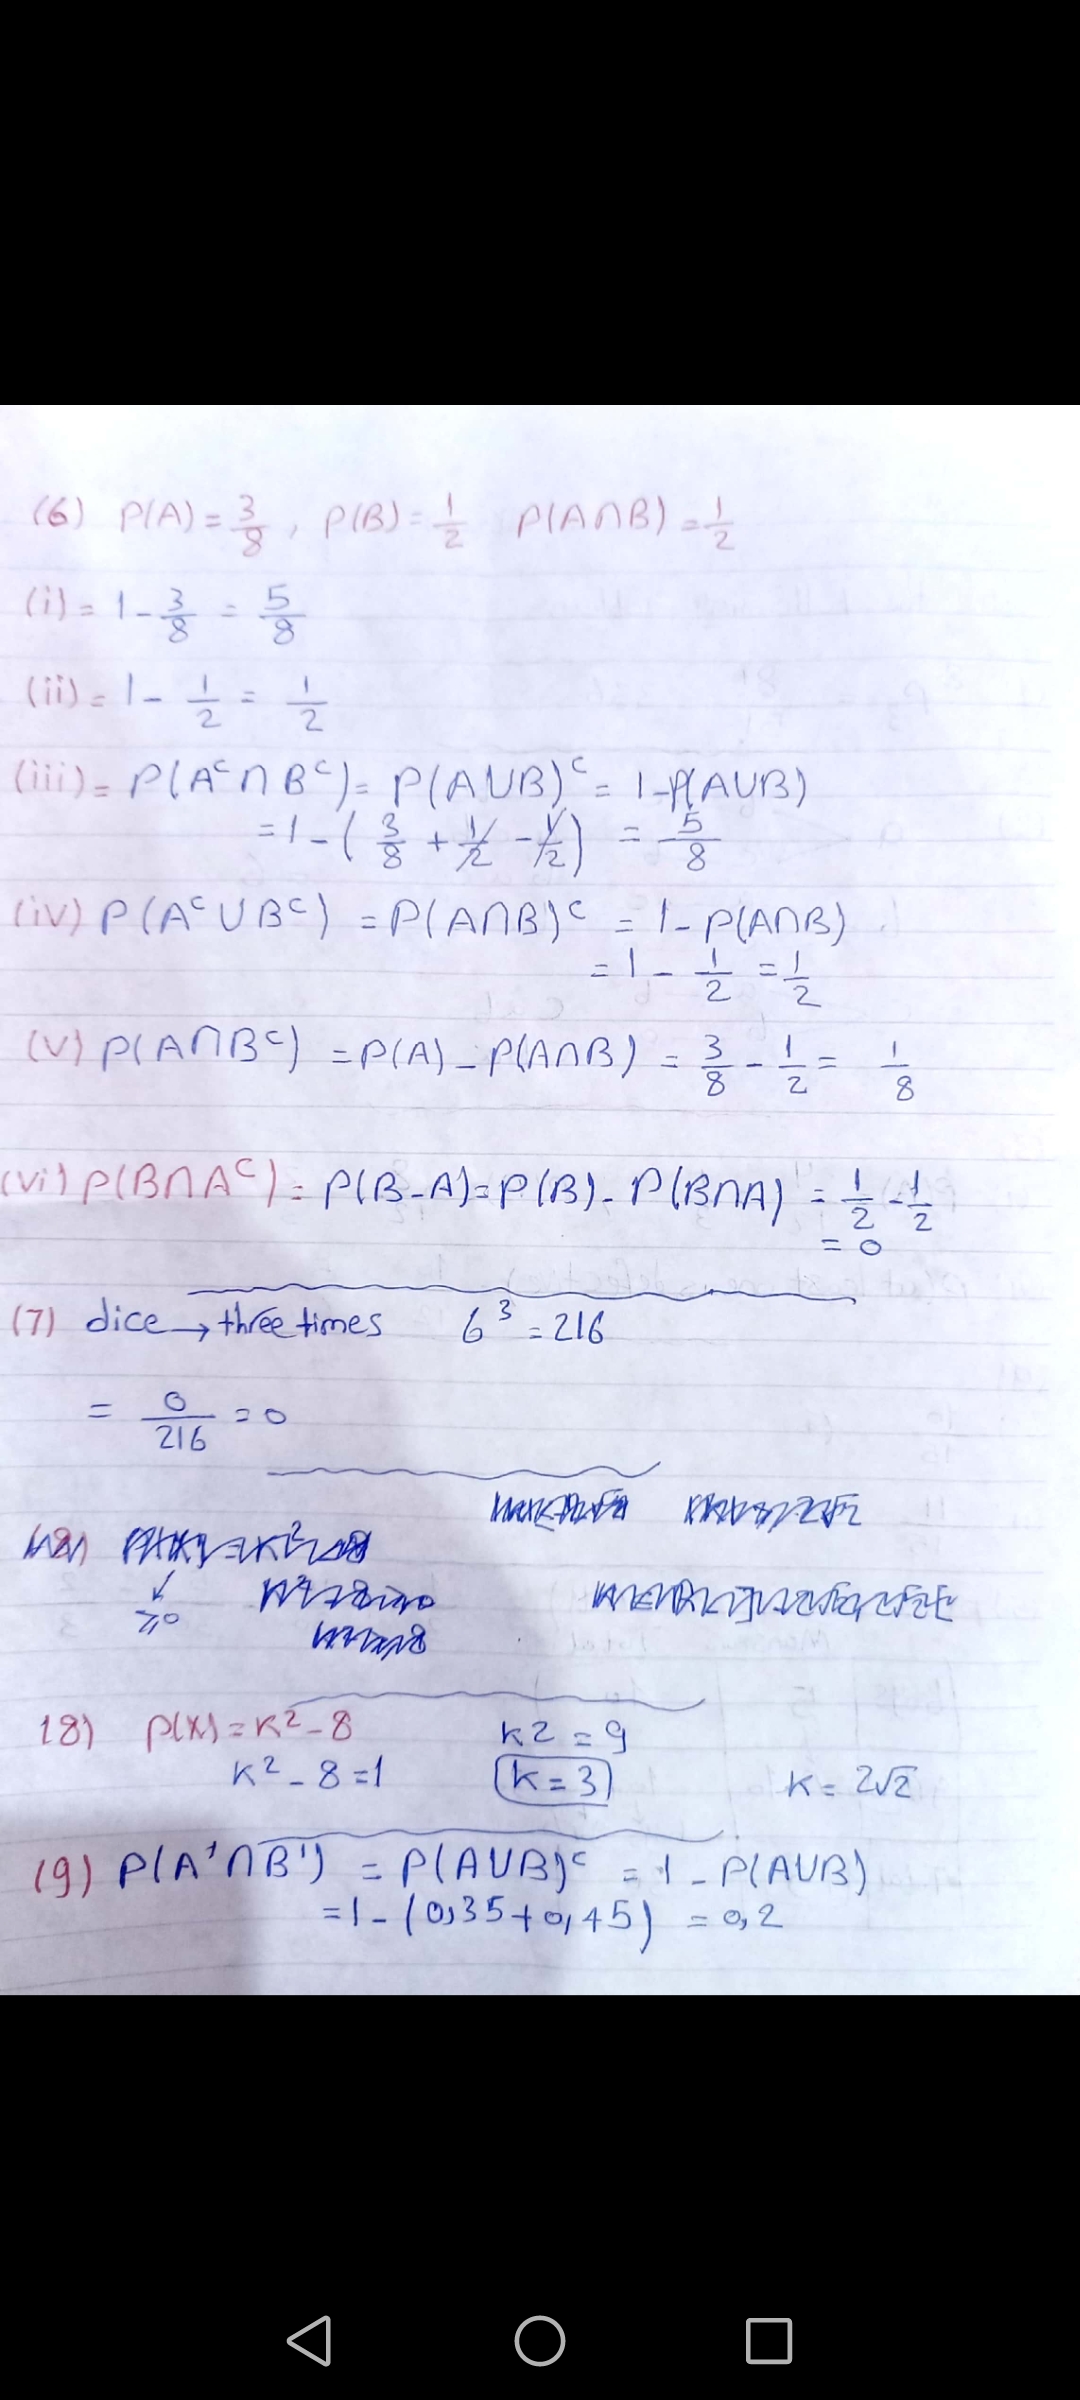 (6) P(A) = 3/8 , P(B) = 1/2 P(A∩B) = 1/2
(i) = 1 - 3/8 = 5/8
(ii) = 1 - 1/2 = 1/2
(iii) = P(Aᶜ ∩ Bᶜ) = P(A∪B)ᶜ = 1 - P(A∪B)
= 1 - (3/8 + 1/2 - 1/2) = 5/8
(iv) P(Aᶜ ∪ Bᶜ) = P(A∩B)ᶜ = 1 - P(A∩B)
= 1 - 1/2 = 1/2
(v) P(A∩Bᶜ) = P(A) - P(A∩B) = 3/8 - 1/2 = 1/8
(vi) P(B∩Aᶜ) = P(B-A) = P(B) - P(B∩A) = 1/2 - 1/2
= 0
(7) dice → three times 6³ = 216
= 0/216 = 0
≥0
18) P(X) = K² - 8 K2 = 9
K² - 8 = 1 K = 3 K = 2√2
(9) P(A' ∩ B') = P(A∪B)ᶜ = 1 - P(A∪B)
= 1 - (0,35 + 0,45) = 0,2